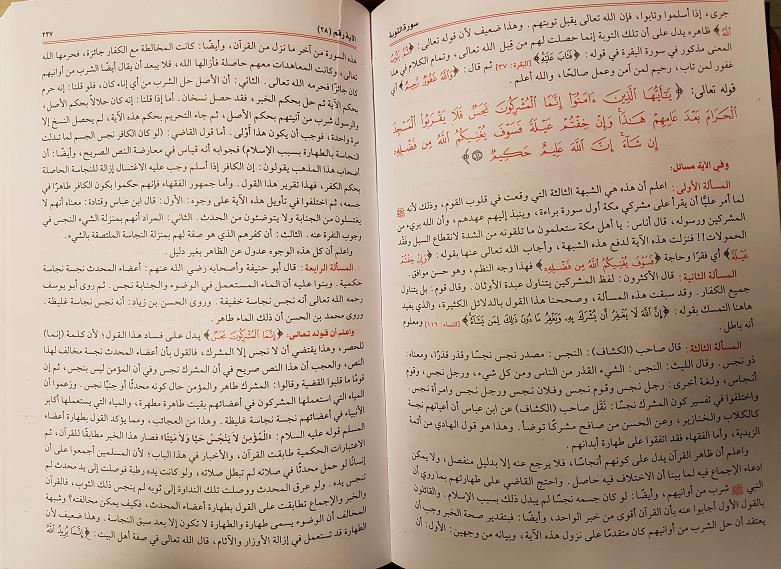 سورة التوبة
جرى، إذا أسلموا وتابوا، فإن الله تعالى يقبل توبتهم. وهذا ضعيف لأن قوله تعالى: ﴿ثُمَّ يَتُوبُ
اللَّهُ﴾ ظاهره يدل على أن تلك التوبة إنما حصلت لهم من قِبل الله تعالى، وتمام الكلام في هذا
المعنى مذكور في سورة البقرة في قوله: ﴿فَتَابَ عَلَيْهِ﴾ [البقرة: ٣٧] ثم قال: ﴿وَاللَّهُ غَفُورٌ رَحِيمٌ﴾ أي
غفور لمن تاب، رحيم لمن آمن وعمل صالحًا، والله أعلم.
قوله تعالى: ﴿يَتَأَيُّهَا الَّذِينَ ءَامَنُوا إِنَّمَا الْمُشْرِكُونَ نَجَسٌ فَلَا يَقْرَبُوا الْمَسْجِدَ
الْحَرَامَ بَعْدَ عَامِهِمْ هَذَا وَإِنْ خِفْتُمْ عَيْلَةً فَسَوْفَ يُغْنِيكُمُ اللَّهُ مِن فَضْلِهِ
إِن شَاءَ إِنَّ اللَّهَ عَلِيمٌ حَكِيمٌ ۝﴾
وفي الآية مسائل:
المسألة الأولى: اعلم أن هذه هي الشبهة الثالثة التي وقعت في قلوب القوم، وذلك لأنه ﷺ
لما أمر عليًّا أن يقرأ على مشركي مكة أول سورة براءة، وينبذ إليهم عهدهم، وأن الله بريء من
المشركين ورسوله، قال أناس: يا أهل مكة ستعلمون ما تلقونه من الشدة لانقطاع السبل وفقد
الحمولات!! فنزلت هذه الآية لدفع هذه الشبهة، وأجاب الله تعالى عنها بقوله: ﴿وَإِنْ خِفْتُمْ
عَيْلَةً﴾ أي فقرًا وحاجة ﴿فَسَوْفَ يُغْنِيكُمُ اللَّهُ مِن فَضْلِهِ﴾ فهذا وجه النظم، وهو حسن موافق.
المسألة الثانية: قال الأكثرون: لفظ المشركين يتناول عبدة الأوثان. وقال قوم: بل يتناول
جميع الكفار. وقد سبقت هذه المسألة، وصححنا هذا القول بالدلائل الكثيرة، والذي يفيد
هاهنا التمسك بقوله: ﴿إِنَّ اللَّهَ لَا يَغْفِرُ أَن يُشْرَكَ بِهِ، وَيَغْفِرُ مَا دُونَ ذَلِكَ لِمَن يَشَاءُ﴾ [النساء: ١١٦] ومعلوم
أنه باطل.
المسألة الثالثة: قال صاحب (الكشاف): النجس: مصدر نجس نجسًا وقذر قذرًا، ومعناه:
ذو نجس. وقال الليث: النجس: الشيء القذر من الناس ومن كل شيء، ورجل نجس، وقوم
أنجاس، ولغة أخرى: رجل نجس وقوم نجس وفلان نجس ورجل نجس وامرأة نجس.
واختلفوا في تفسير كون المشرك نجسًا: نَقَل صاحب (الكشاف) عن ابن عباس أن أعيانهم نجسة
كالكلاب والخنازير، وعن الحسن من صافح مشركًا توضأ. وهذا هو قول الهادي من أئمة
الزيدية، وأما الفقهاء فقد اتفقوا على طهارة أبدانهم.
واعلم أن ظاهر القرآن يدل على كونهم أنجاسًا، فلا يرجع عنه إلا بدليل منفصل، ولا يمكن
ادعاء الإجماع فيه لما بينا أن الاختلاف فيه حاصل. واحتج القاضي على طهارتهم بما روي أن
النبي ﷺ شرب من أوانيهم، وأيضًا: لو كان جسمه نجسًا لم يبدل ذلك بسبب الإسلام. والقائلون
بالقول الأول أجابوا عنه بأن القرآن أقوى من خبر الواحد، وأيضًا: فبتقدير صحة الخبر وجب أن
يعتقد أن حل الشرب من أوانيهم كان متقدمًا على نزول هذه الآية، وبيانه من وجهين: الأول: أن
الآية رقم (٢٨)
٢٣٧
هذه السورة من آخر ما نزل من القرآن، وأيضًا: كانت المخالطة مع الكفار جائزة، فحرمها الله
تعالى، وكانت المعاهدات معهم حاصلة فأزالها الله، فلا يبعد أن يقال أيضًا الشرب من أوانيهم
كان جائزًا فحرمه الله تعالى. الثاني: أن الأصل حل الشرب من أي إناء كان، فلو قلنا: إنه حرم
بحكم الآية ثم حل بحكم الخبر، فقد حصل نسخان. أما إذا قلنا: إنه كان حلالًا بحكم الأصل،
والرسول شرب من آنيتهم بحكم الأصل، ثم جاء التحريم بحكم هذه الآية، لم يحصل النسخ إلا
مرة واحدة، فوجب أن يكون هذا أَوْلى. أما قول القاضي: لو كان الكافر نجس الجسم لما تبدلت
النجاسة بالطهارة بسبب الإسلام) فجوابه أنه قياس في معارضة النص الصريح، وأيضًا: أن
أصحاب هذا المذهب يقولون: إن الكافر إذا أسلم وجب عليه الاغتسال إزالة للنجاسة الحاصلة
بحكم الكفر، فهذا تقرير هذا القول. وأما جمهور الفقهاء فإنهم حكموا بكون الكافر طاهرًا في
جسمه، ثم اختلفوا في تأويل هذه الآية على وجوه: الأول: قال ابن عباس وقتادة: معناه أنهم لا
يغتسلون من الجنابة ولا يتوضئون من الحدث. الثاني: المراد أنهم بمنزلة الشيء النجس في
وجوب النفرة عنه. الثالث: أن كفرهم الذي هو صفة لهم بمنزلة النجاسة الملتصقة بالشيء.
واعلم أن كل هذه الوجوه عدول عن الظاهر بغير دليل.
المسألة الرابعة: قال أبو حنيفة وأصحابه رضي الله عنهم: أعضاء المحدث نجسة نجاسة
حكمية. وبنوا عليه أن الماء المستعمل في الوضوء والجنابة نجس. ثم روى أبو يوسف
رحمه الله تعالى أنه نجس نجاسة خفيفة. وروى الحسن بن زياد: أنه نجس نجاسة غليظة.
وروى محمد بن الحسن أن ذلك الماء طاهر.
واعلم أن قوله تعالى: ﴿إِنَّمَا الْمُشْرِكُونَ نَجَسٌ﴾ يدل على فساد هذا القول؛ لأن كلمة (إنما)
للحصر، وهذا يقتضي أن لا نجس إلا المشرك، فالقول بأن أعضاء المحدث نجسة مخالف لهذا
النص، والعجب أن هذا النص صريح في أن المشرك نجس وفي أن المؤمن ليس بنجس، ثم إن
قومًا ما قلبوا القضية وقالوا: المشرك طاهر والمؤمن حال كونه محدثًا أو جنبًا نجس. وزعموا أن
المياه التي استعملها المشركون في أعضائهم بقيت طاهرة مطهرة، والمياه التي يستعملها أكابر
الأنبياء في أعضائهم نجسة نجاسة غليظة. وهذا من العجائب، ومما يؤكد القول بطهارة أعضاء
المسلم قوله عليه السلام: «الْمُؤْمِنُ لاَ يَنْجُسُ حَيًّا وَلاَ مَيِّتًا» فصار هذا الخبر مطابقًا للقرآن، ثم
الاعتبارات الحكمية طابقت القرآن، والأخبار في هذا الباب؛ لأن المسلمين أجمعوا على أن
إنسانًا لو حمل محدثًا في صلاته لم تبطل صلاته، ولو كانت يده رطبة فوصلت إلى يد محدث لم
تنجس يده. ولو عرق المحدث ووصلت تلك النداوة إلى ثوبه لم ينجس ذلك الثوب، فالقرآن
والخبر والإجماع تطابقت على القول بطهارة أعضاء المحدث، فكيف يمكن مخالفته؟ وشبهة
المخالف أن الوضوء يسمى طهارة والطهارة لا تكون إلا بعد سبق النجاسة. وهذا ضعيف لأن
الطهارة قد تستعمل في إزالة الأوزار والآثام، قال الله تعالى في صفة أهل البيت: ﴿إِنَّمَا يُرِيدُ اللَّهُ